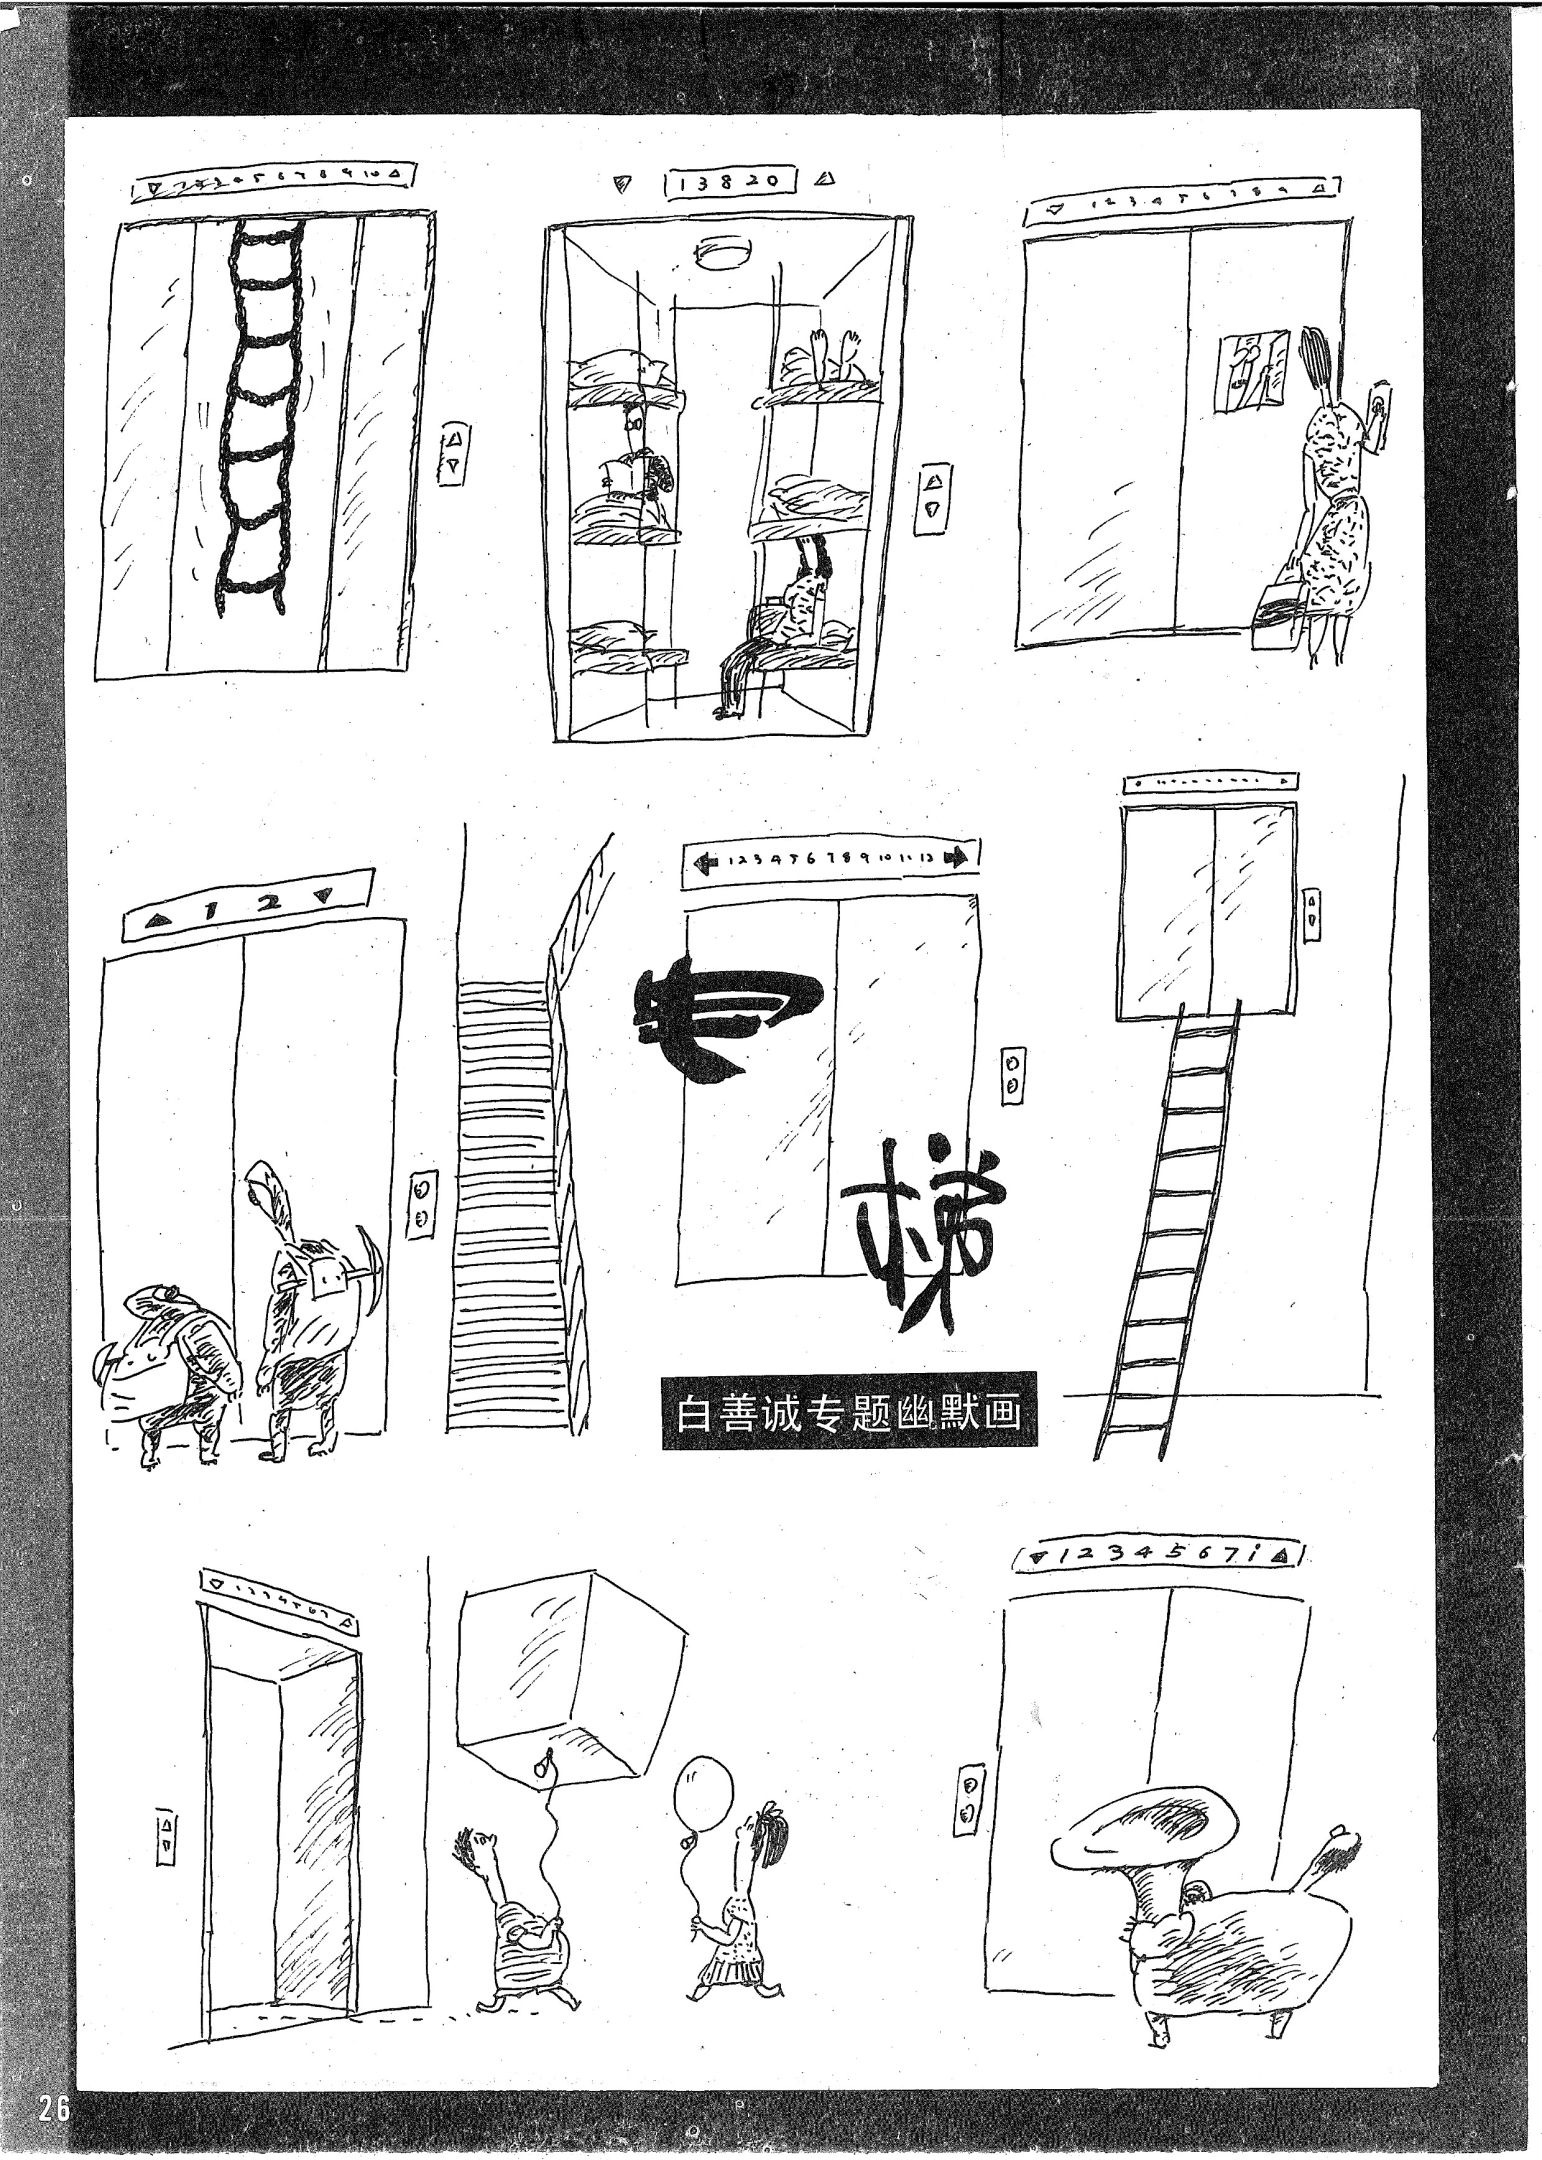 ▽ 1 2 3 4 5 6 7 8 9 10 △
▽ 13820 △
▽ 1 2 3 4 5 6 7 8 9 △
▲ 1 2 ▼
← 1 2 3 4 5 6 7 8 9 10 11 12 →
电
梯
白善诚专题幽默画
▽ 1 2 3 4 5 6 7 △
▼ 1 2 3 4 5 6 7 i ▲
26